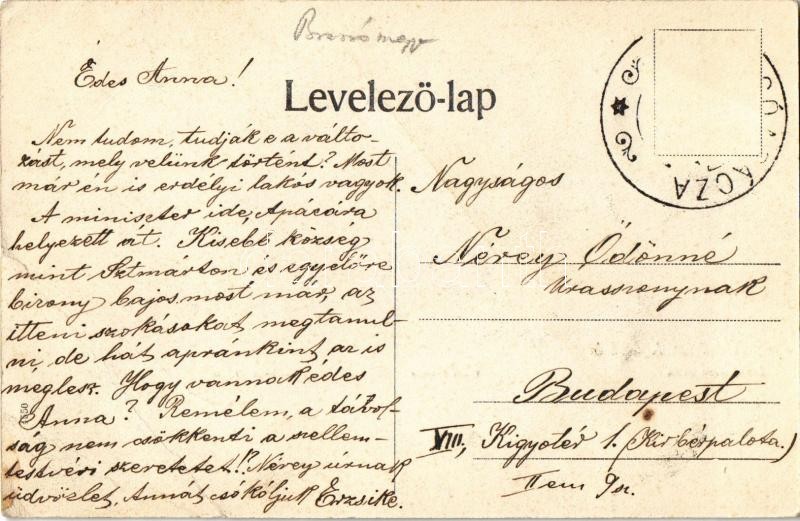 Brassó megye
Édes Anna!
Levelező-lap
Nem tudom, tudják e aválto-
zást, mely velünk történt? Most
már én is erdélyi lakós vagyok.
A miniszter ide, Apáczára
helyezett át. Kisebb község
mint Sztmárton és egyelőre
bizony bajos most már, az
itteni szokásokat megtanul-
ni, de hát apránkint az is
meglesz. Hogy vannak édes
Anna? Remélem, a távol-
ság nem csökkenti a szellem-
testvéri szeretetet!? Nérey úrnak
üdvözlet, Annát csókoljuk Erzsike.
1350
ÁCZA
Nagyságos
Nérey Ödönné
Urasszonynak
Budapest
VIII, Kigyótér 1. (Kir bérpalota.)
II em